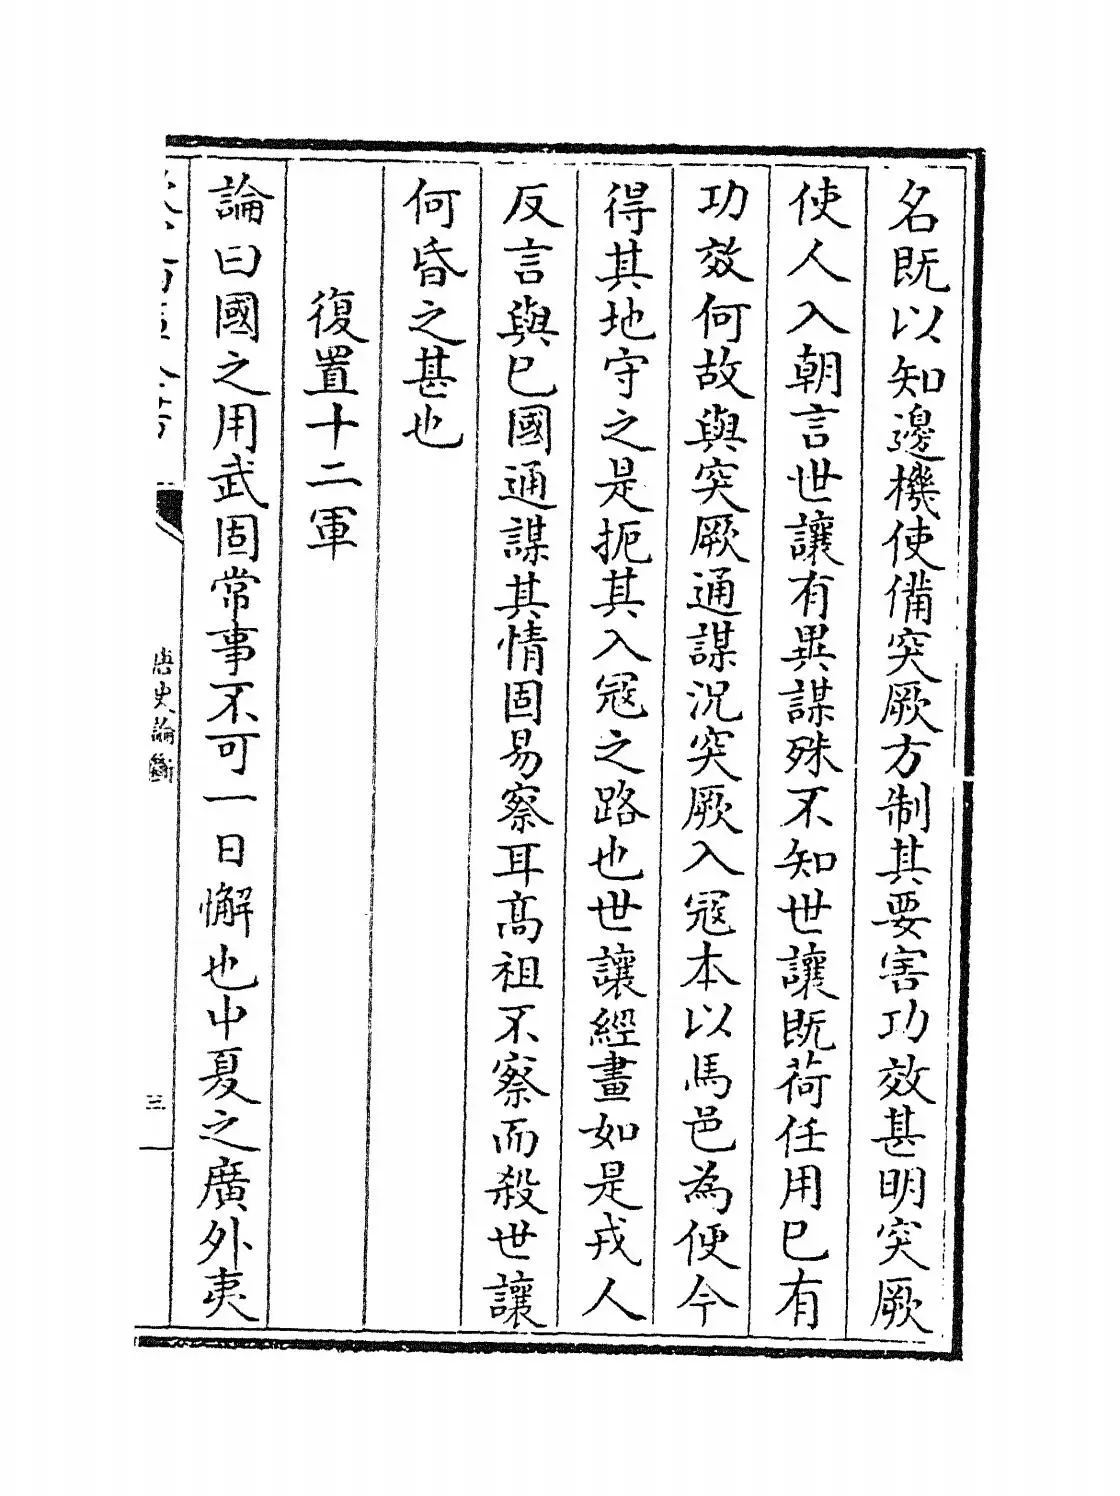 名既以知邊機使備突厥方制其要害功效甚明突厥
使人入朝言世讓有異謀殊不知世讓既荷任用已有
功效何故與突厥通謀況突厥入冦本以馬邑為便今
得其地守之是扼其入冦之路也世讓經畫如是戎人
反言與已國通謀其情固易察耳髙祖不察而殺世讓
何昏之甚也
復置十二軍
論曰國之用武固常事不可一日懈也中夏之廣外夷
唐史論斷
三